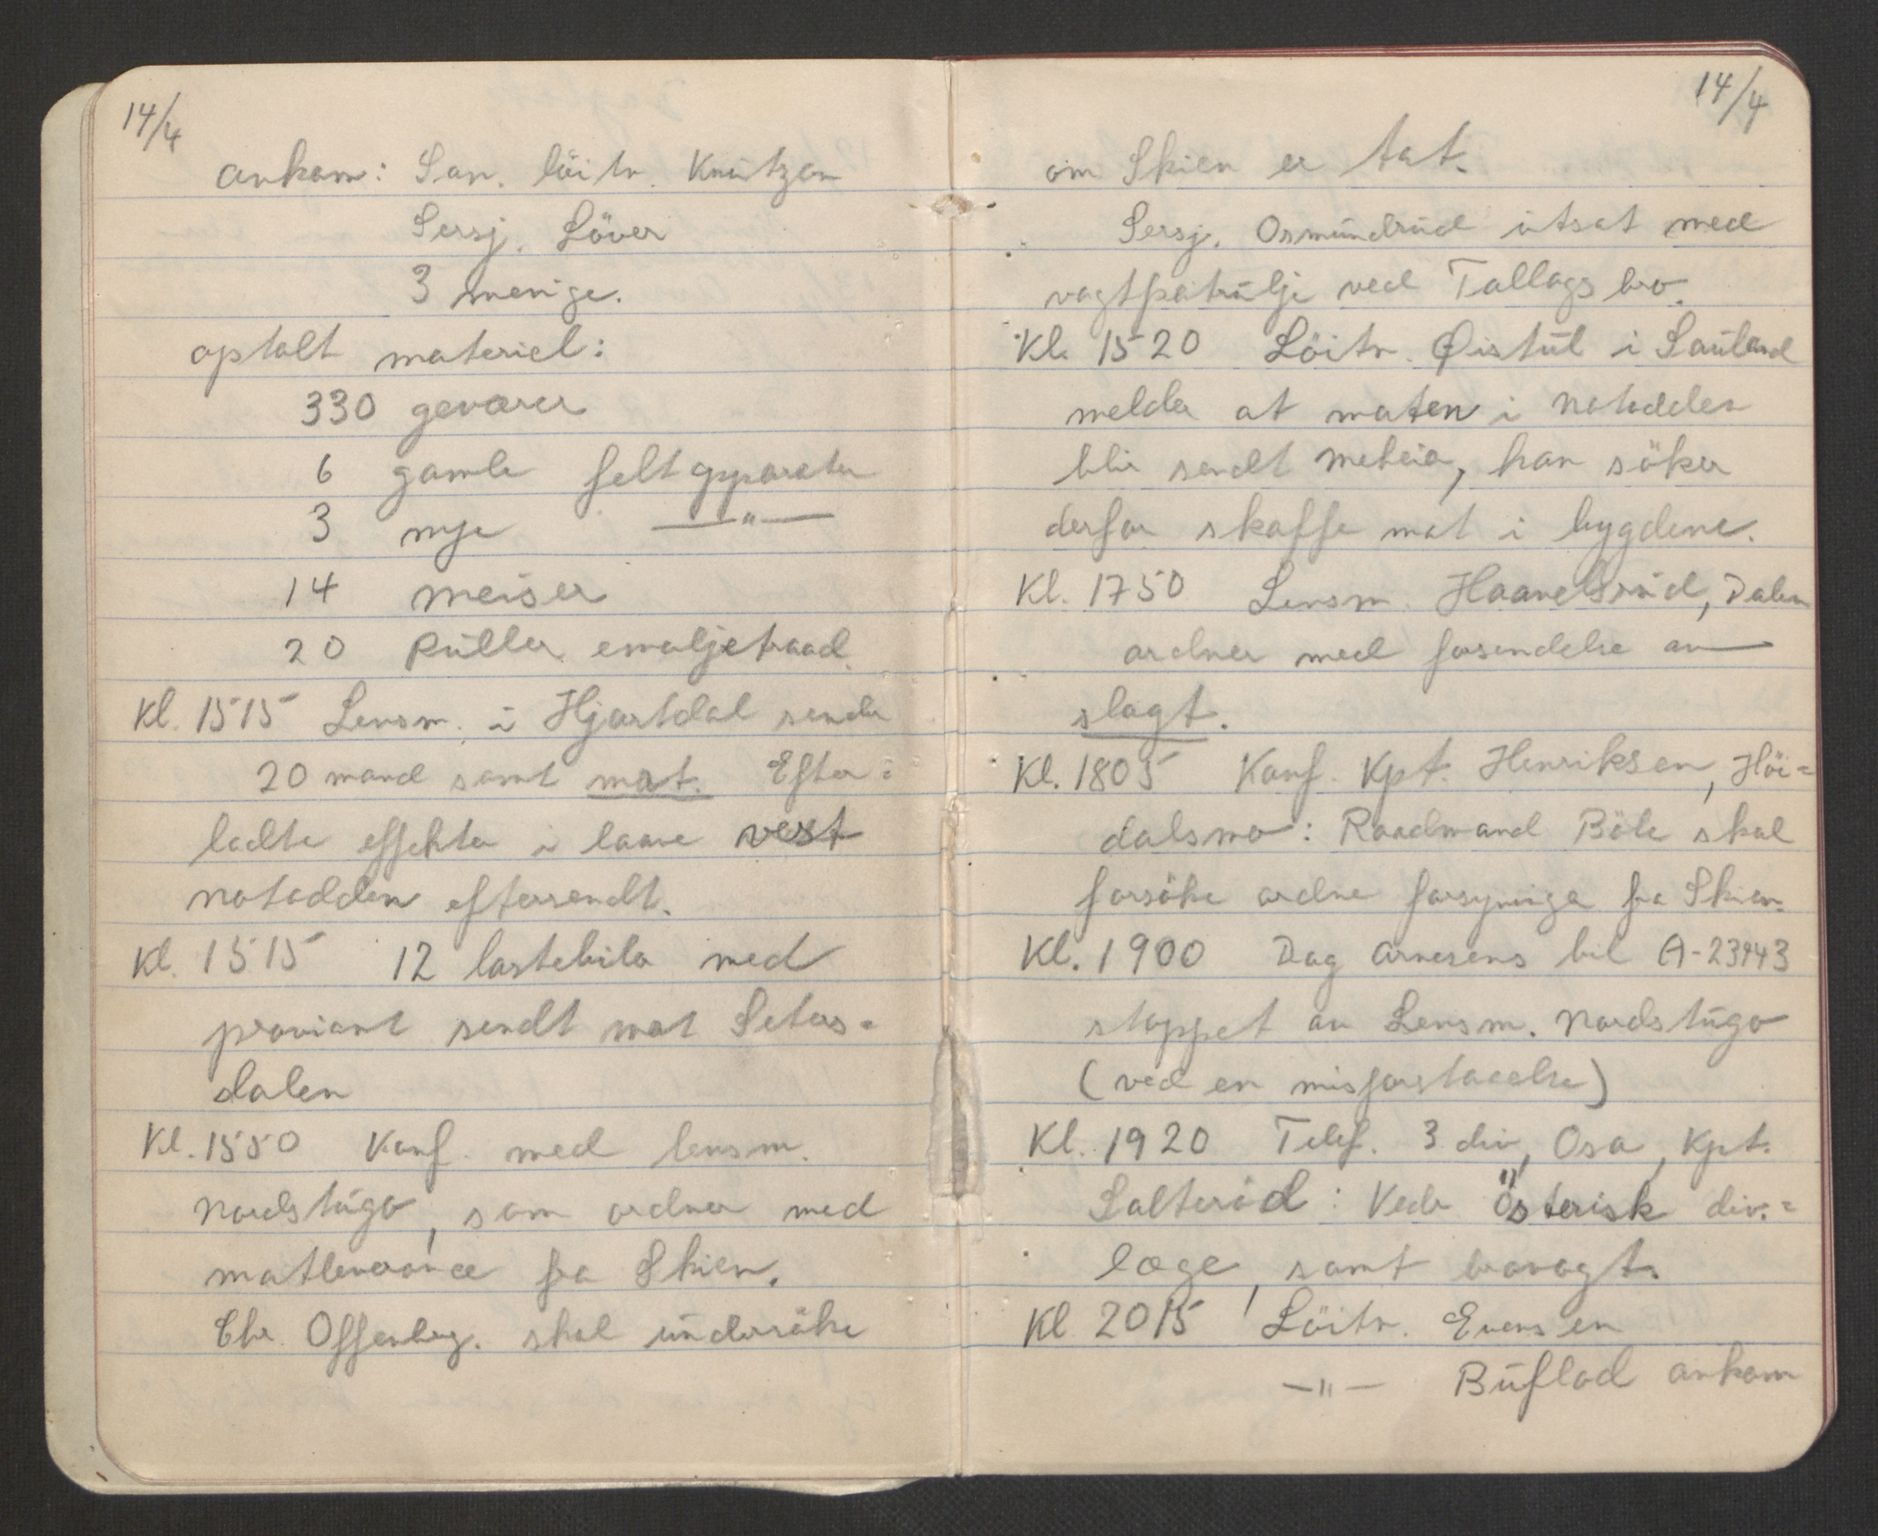 14/4
ankom: San. löitn. Knutzon
Sersj. Löver
3 menige.
optalt materiel:
330 geværer
6 gamle felt apparater
3 nye —"—
14 meiser
20 Ruller emaljetraad.
Kl. 1515 Lensm. i Hjartdal sender
20 mand samt mat. Efter=
ladte effekter i laave vest
Notodden eftersendt.
Kl. 1515 12 lastebiler med
proviant sendt mot Seters=
dalen
Kl. 1550 Konf. med lensm.
Nordstugo, som ordner med
matleverance fra Skien.
Chr. Offenberg. skal undersöke
14/4
om Skien er tat.
Sersj. Osmundrud utsat med
vagtpatrulje ved Tallags bro.
Kl. 1520 Löitn. Øistul i Sauland
melder at maten i Notodden
blir sendt Meheia, han söker
derfor skaffe mat i bygdene.
Kl. 1750 Lensm. Haavelsrud, Dalen
ordner med forsendelse av
slagt.
Kl. 1805 Konf. Kpt. Henriksen, Höi=
dalsmo: Raadmand Böle skal
forsöke ordne forsyninge fra Skien.
Kl. 1900 Dag Arnesens bil A-23443
stoppet av Lensm. Nordstugo
(ved en misforstaaelse)
Kl. 1920 Telef. 3 div, Osa, Kpt.
Salteröd: Vedr Österisk div.=
læge, samt brovagt.
Kl 2015 Löitn. Evensen
—"— Buflod ankom